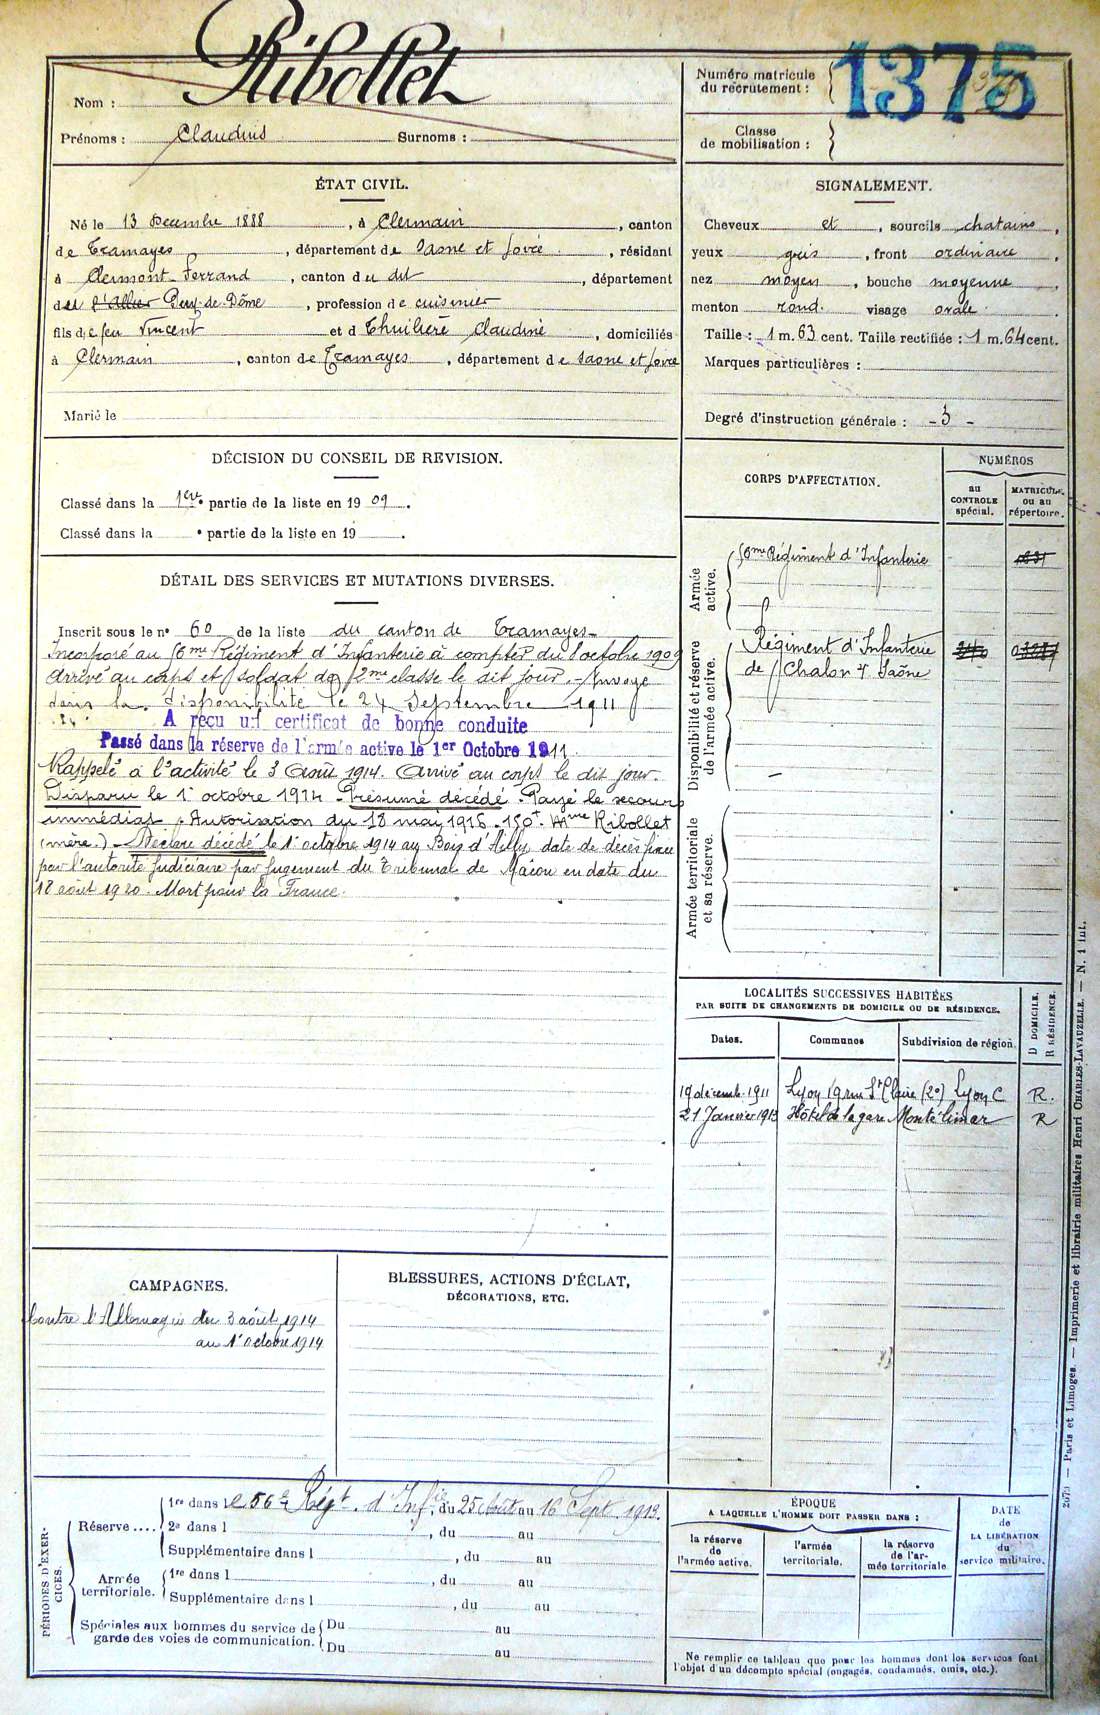 Ribollet
Nom :
Prénoms : Claudius Surnoms :
Numéro matricule
du recrutement : 1375
Classe
de mobilisation :
ÉTAT CIVIL.
Né le 13 Decembre 1888, à Clermain, canton
de Tramayes, département de Saone et Loire, résidant
à Clermont-Ferrand, canton du dit, département
du l'Allier Puy-de-Dôme, profession de cuisinier
fils de feu Vincent et d Thuilière Claudine domiciliés
à Clermain, canton de Tramayes, département de Saone et Loire
Marié le
SIGNALEMENT.
Cheveux et, sourcils chatains,
yeux gris, front ordinaire,
nez moyen, bouche moyenne,
menton rond visage ovale.
Taille : 1 m. 63 cent. Taille rectifiée : 1 m. 64 cent.
Marques particulières :
Degré d'instruction générale : - 3 -
DÉCISION DU CONSEIL DE REVISION.
Classé dans la 1ere partie de la liste en 1909.
Classé dans la • partie de la liste en 19 .
DÉTAIL DES SERVICES ET MUTATIONS DIVERSES.
Inscrit sous le n° 60 de la liste du canton de Tramayes
Incorporé au 56me Régiment d'Infanterie à compter du 8 octobre 1909
Arrivé au corps et soldat de 2me classe le dit jour. Envoyé
dans la disponibilité le 24 Septembre 1911
A reçu un certificat de bonne conduite
Passé dans la réserve de l'armée active le 1er Octobre 1911.
Rappelé à l'activité le 3 Août 1914. Arrivé au corps le dit jour.
Disparu le 1r octobre 1914. Présumé décédé. Payé le secours
immédiat. Autorisation du 18 mai 1916. 150f. Mme Ribollet
(mère.) Déclaré décédé le 1r octobre 1914 au Bois d'Ailly, date de décès fixée
par l'autorité judiciaire par jugement du Tribunal de Mâcon en date du
18 août 1920. Mort pour la France.
CORPS D'AFFECTATION.
NUMÉROS
au
CONTROLE
spécial.
MATRICULE
ou au
répertoire.
Armée
active.
56me Régiment d'Infanterie
Disponibilité et réserve
de l'armée active.
Régiment d'Infanterie
de Chalon s/ Saône
Armée territoriale
et sa réserve.
LOCALITÉS SUCCESSIVES HABITÉES
PAR SUITE DE CHANGEMENTS DE DOMICILE OU DE RÉSIDENCE.
D DOMICILE.
R RÉSIDENCE.
Dates. Communes Subdivision de région.
19 décemb. 1911 Lyon 19 rue St Claire (2e) Lyon C R.
21 Janvier 1913 Hôtel de la gare Montélimar R
CAMPAGNES.
Contre l'Allemagne du 3 août 1914
au 1r octobre 1914
BLESSURES, ACTIONS D'ÉCLAT,
DÉCORATIONS, ETC.
PÉRIODES D'EXERCICES.
Réserve ....
1re dans le 56e Régt. d'Infie, du 25 Août au 16 Sept. 1913.
2e dans l , du au
Supplémentaire dans l , du au
Armée
territoriale.
1re dans l , du au
Supplémentaire dans l , du au
Spéciales aux hommes du service de
garde des voies de communication.
Du au
Du au
ÉPOQUE
A LAQUELLE L'HOMME DOIT PASSER DANS :
la réserve
de
l'armée active.
l'armée
territoriale.
la réserve
de l'ar-
mée territoriale
DATE
de
LA LIBÉRATION
du
service militaire.
Ne remplir ce tableau que pour les hommes dont les services font
l'objet d'un décompte spécial (engagés, condamnés, omis, etc.).
Paris et Limoges. — Imprimerie et librairie militaires Henri CHARLES-LAVAUZELLE. — N. 1 int.